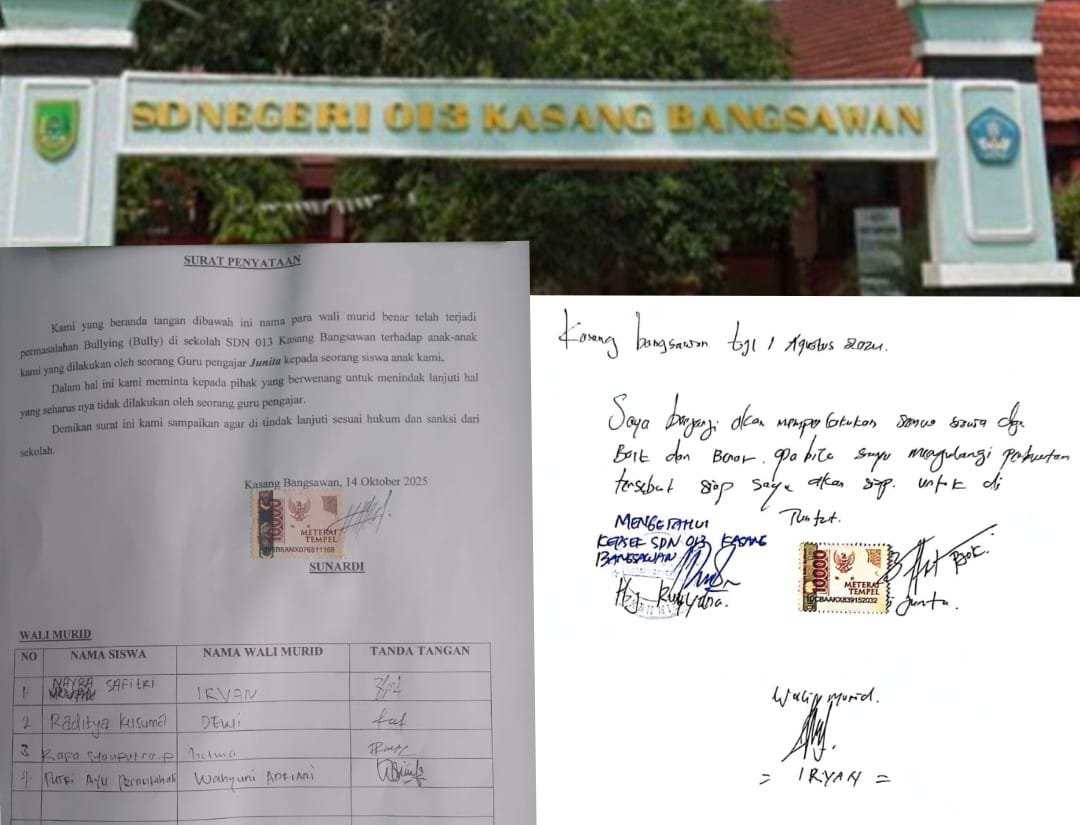 SD NEGERI 013 KASANG BANGSAWAN
SURAT PENYATAAN
Kami yang beranda tangan dibawah ini nama para wali murid benar telah terjadi
permasalahan Bullying (Bully) di sekolah SDN 013 Kasang Bangsawan terhadap anak-anak
kami yang dilakukan oleh seorang Guru pengajar Junita kepada seorang siswa anak kami,
Dalam hal ini kami meminta kepada pihak yang berwenang untuk menindak lanjuti hal
yang seharus nya tidak dilakukan oleh seorang guru pengajar.
Demikan surat ini kami sampaikan agar di tindak lanjuti sesuai hukum dan sanksi dari
sekolah.
Kasang Bangsawan, 14 Oktober 2025
10000
METERAI
TEMPEL
SUNARDI
WALI MURID
NO NAMA SISWA NAMA WALI MURID TANDA TANGAN
1. NAYRA SAFITRI IRVAN
2 Raditya Kusuma DEWI
3
4. Putri Ayu Wahyuni Andriani
Kasang bangsawan tgl 1 Agustus 2024.
Saya berjanji akan memperlakukan semua siswa dgn
Baik dan Benar. apa bila saya mengulangi perbuatan
tersebut siap saya akan siap untuk di
Tuntut.
MENGETAHUI
KEPSEK SDN 013 KASANG
BANGSAWAN
Hj.
10000
METERAI
TEMPEL
Junita.
Wali murid.
= IRYAN =